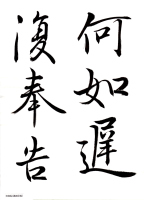 何如遲
復奉告